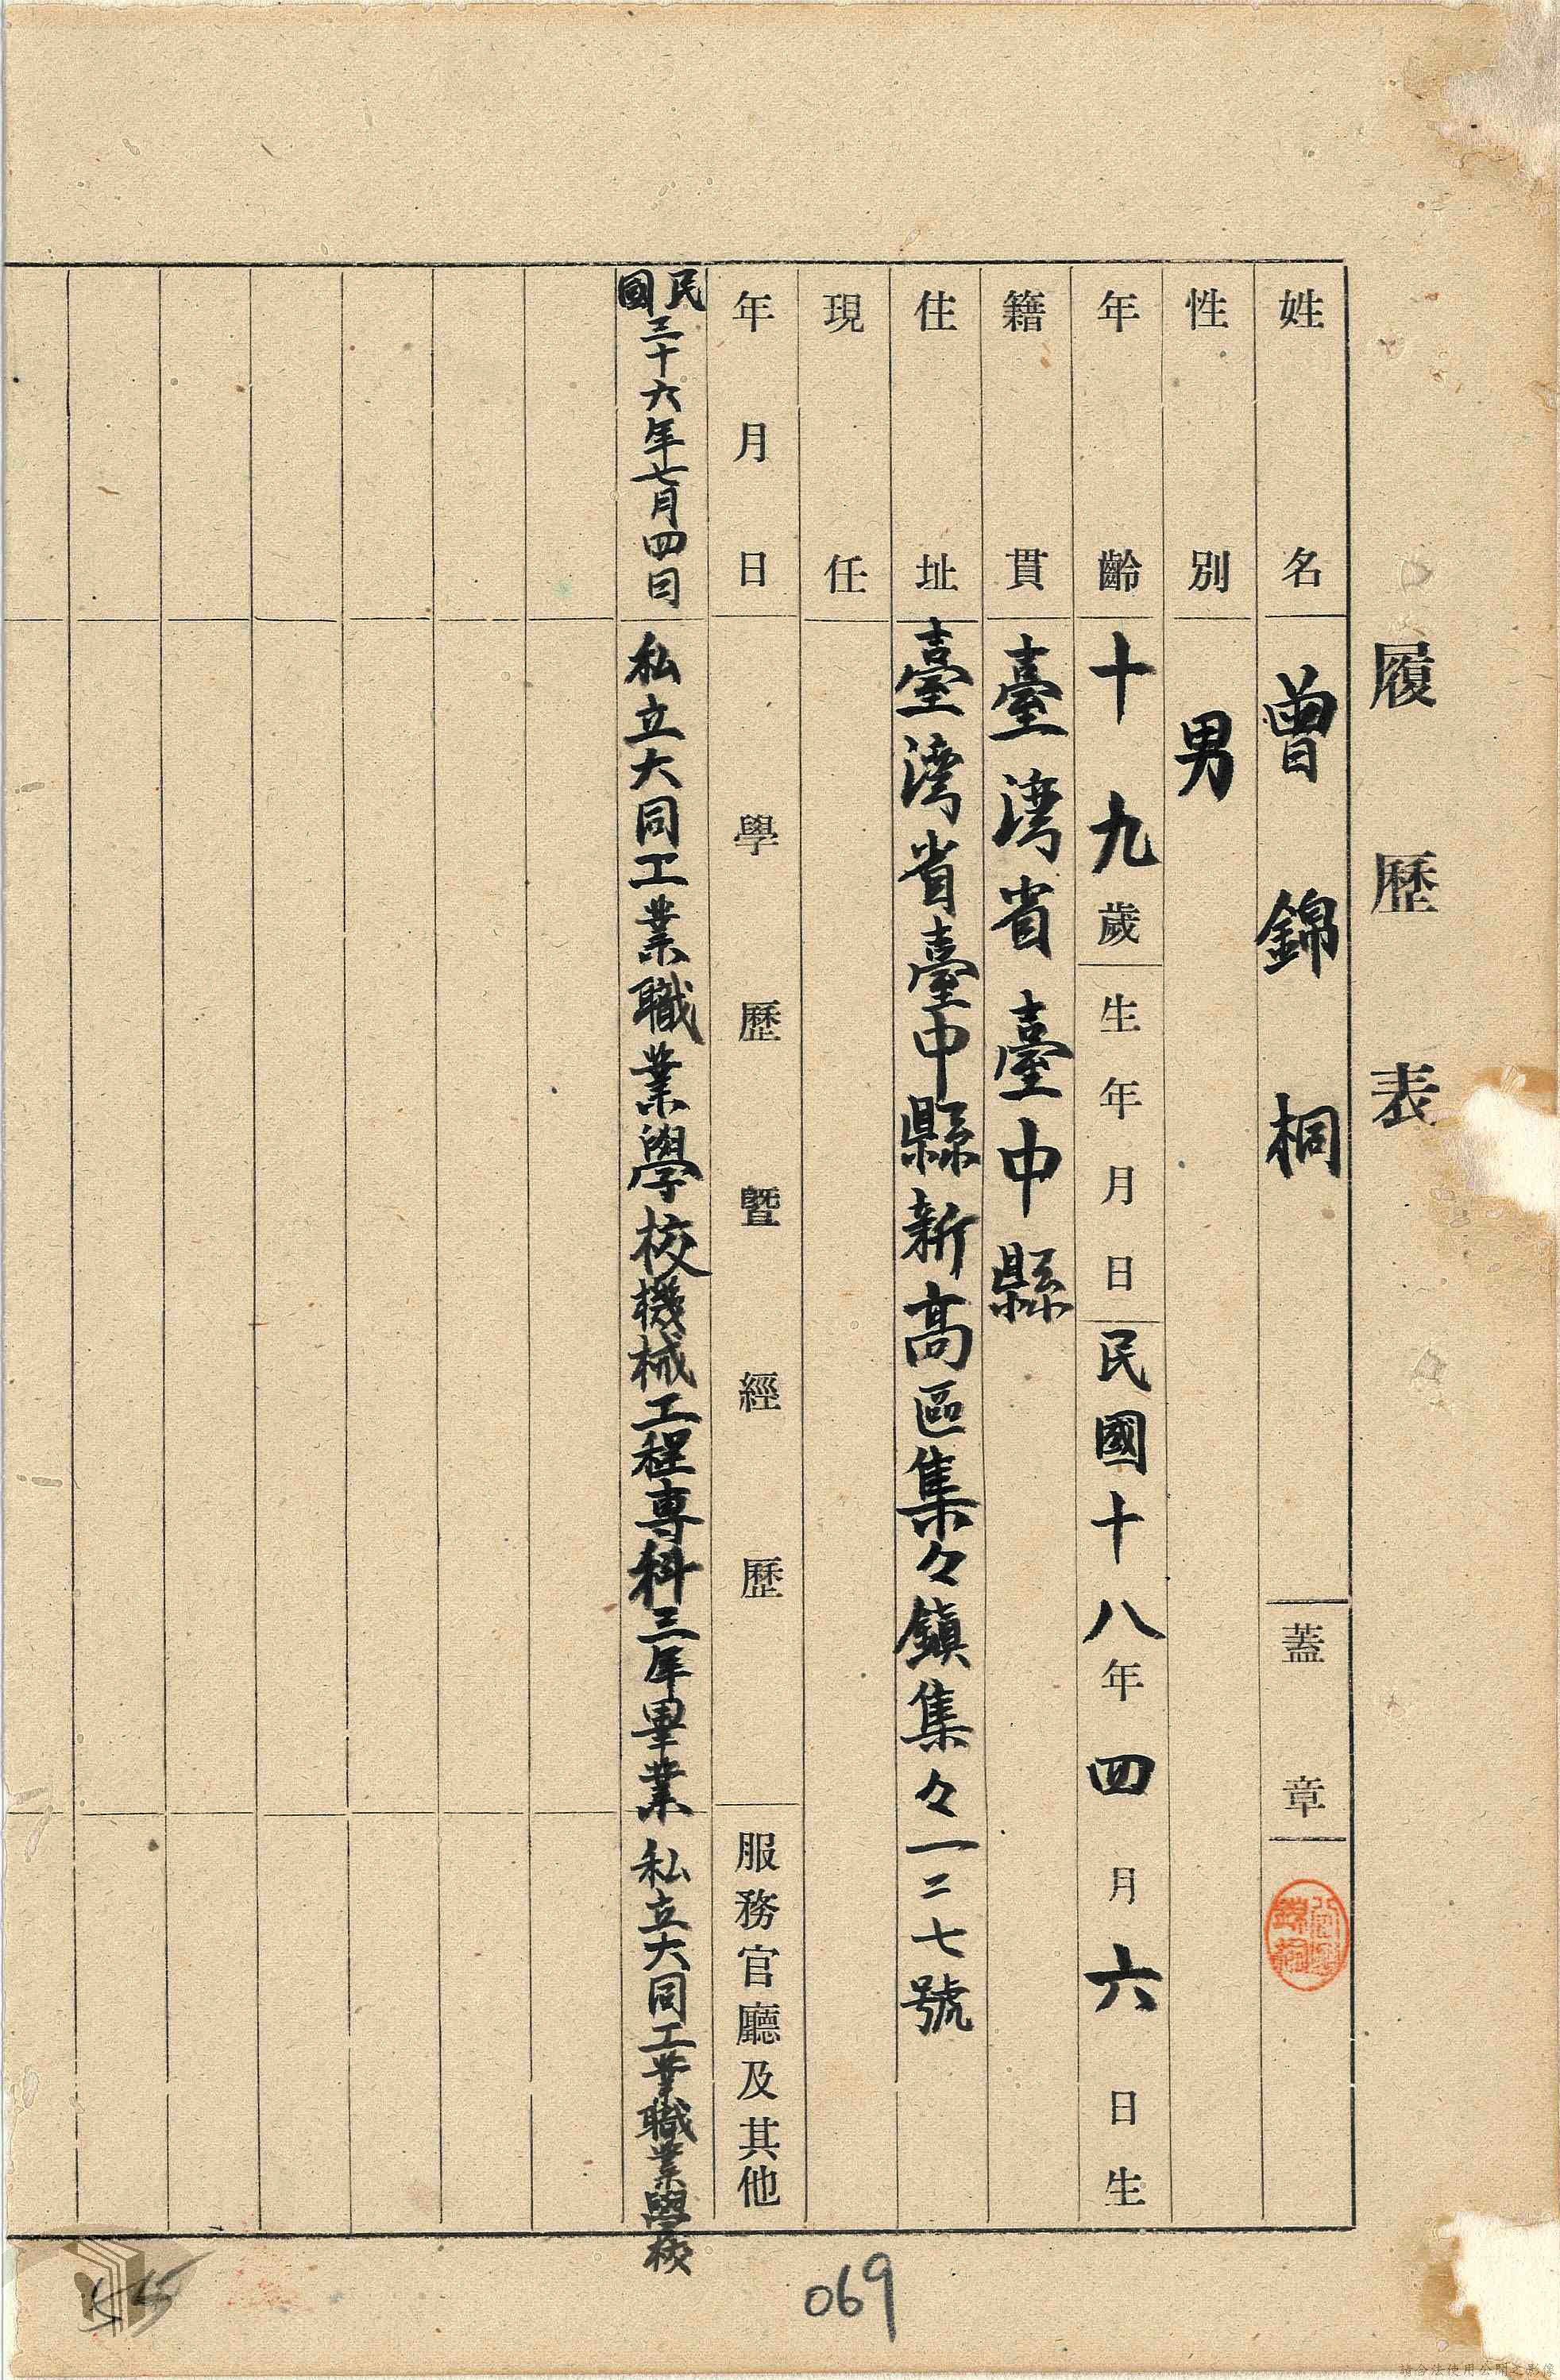 履歷表
姓名 曾錦桐 蓋章
性別 男
年齡 十九歲 生年月日 民國十八年四月六日生
籍貫 臺灣省臺中縣
住址 臺灣省臺中縣新高區集々鎮集々一二七號
現任
年月日 學歷暨經歷 服務官廳及其他
民國三十六年七月四日 私立大同工業職業學校機械工程專科三年畢業 私立大同工業職業學校
069